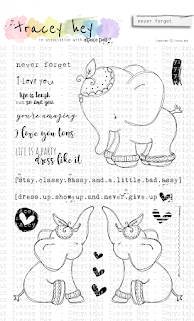 tracey hey
in association with
never forget
never forget
I love you
life is tough
but so are you
you're amazing
I love you tons
LIFE IS A PARTY
dress like it
[stay.classy.sassy.and.a.little.bad.assy]
[dress.up.show.up.and.never.give.up]